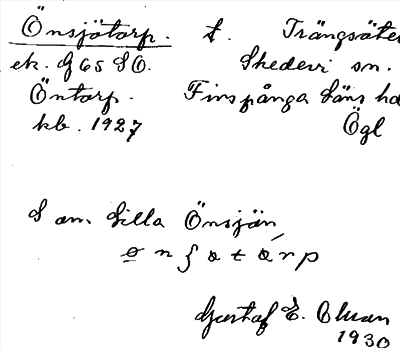 Önsjötorp. t. Trängsäter
ek. G 65 SO. Skedevi sn.
Öntorp. Finspånga läns hd
kb. 1927 Ögl
S om. Lilla Önsjön
Gustaf E. Olsson
1930